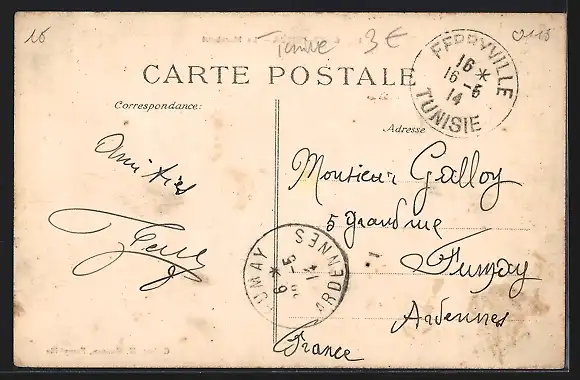 16
Tunisie 3€
CARTE POSTALE
Correspondance:
Adresse
FERRYVILLE
16 *
16 -5
14
TUNISIE
Amitiés
Monsieur Galloy
5 grand rue
Fumay
Ardennes
France
FUMAY
ARDENNES
-5
14